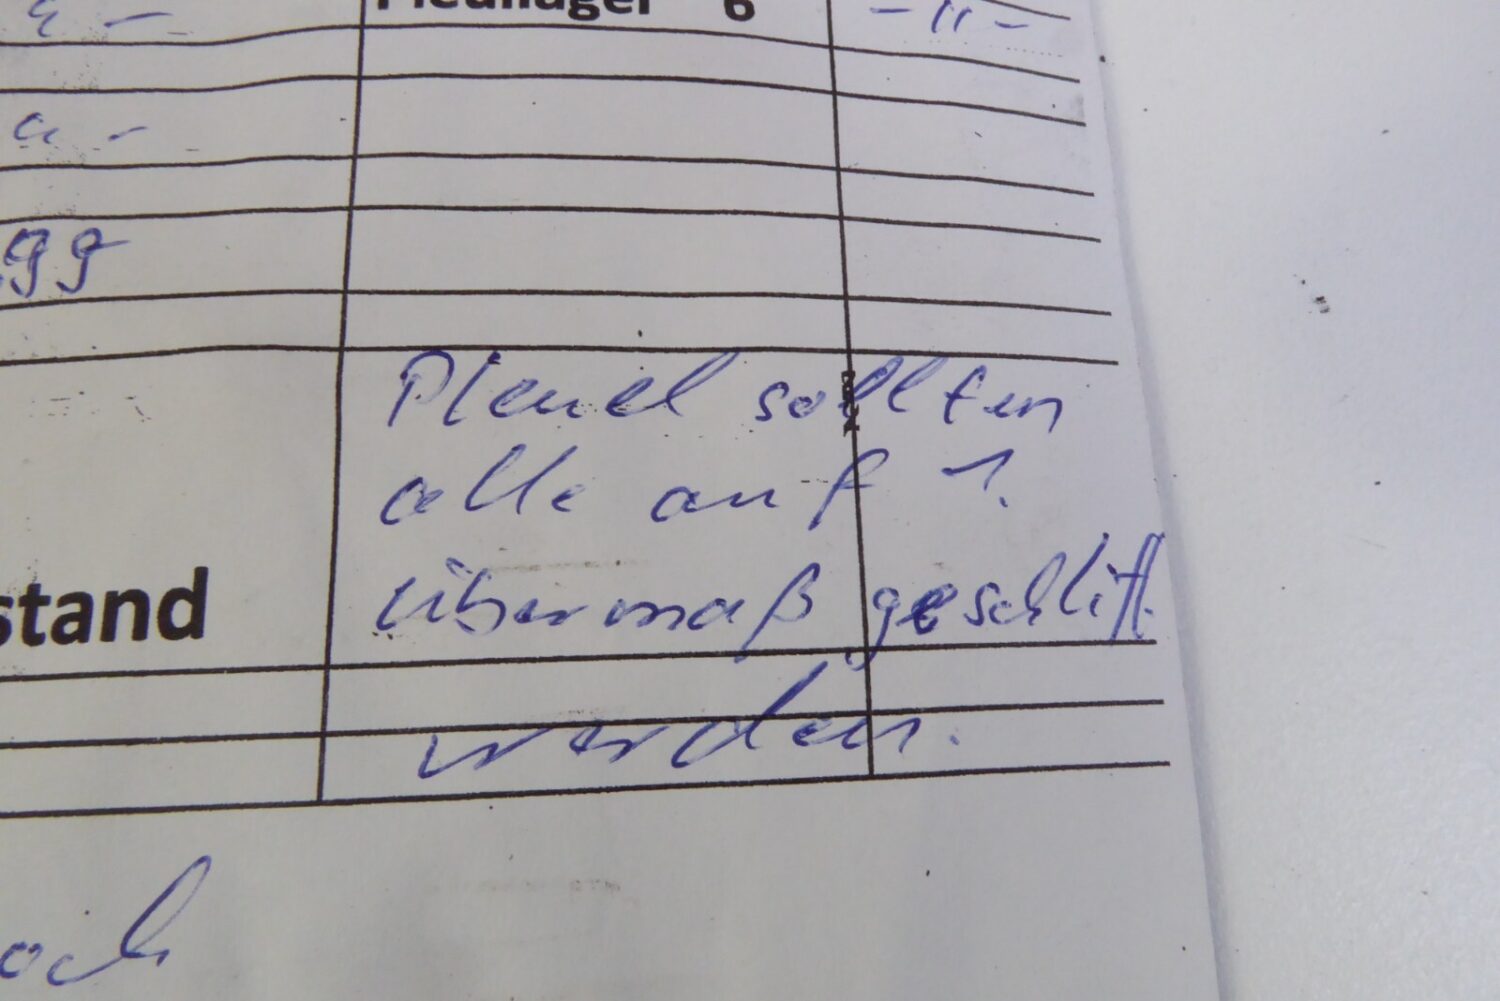 Pleullager 6 -"-
99
Pleuel sollten
alle auf 1.
übermaß geschliff.
stand
werden.
och